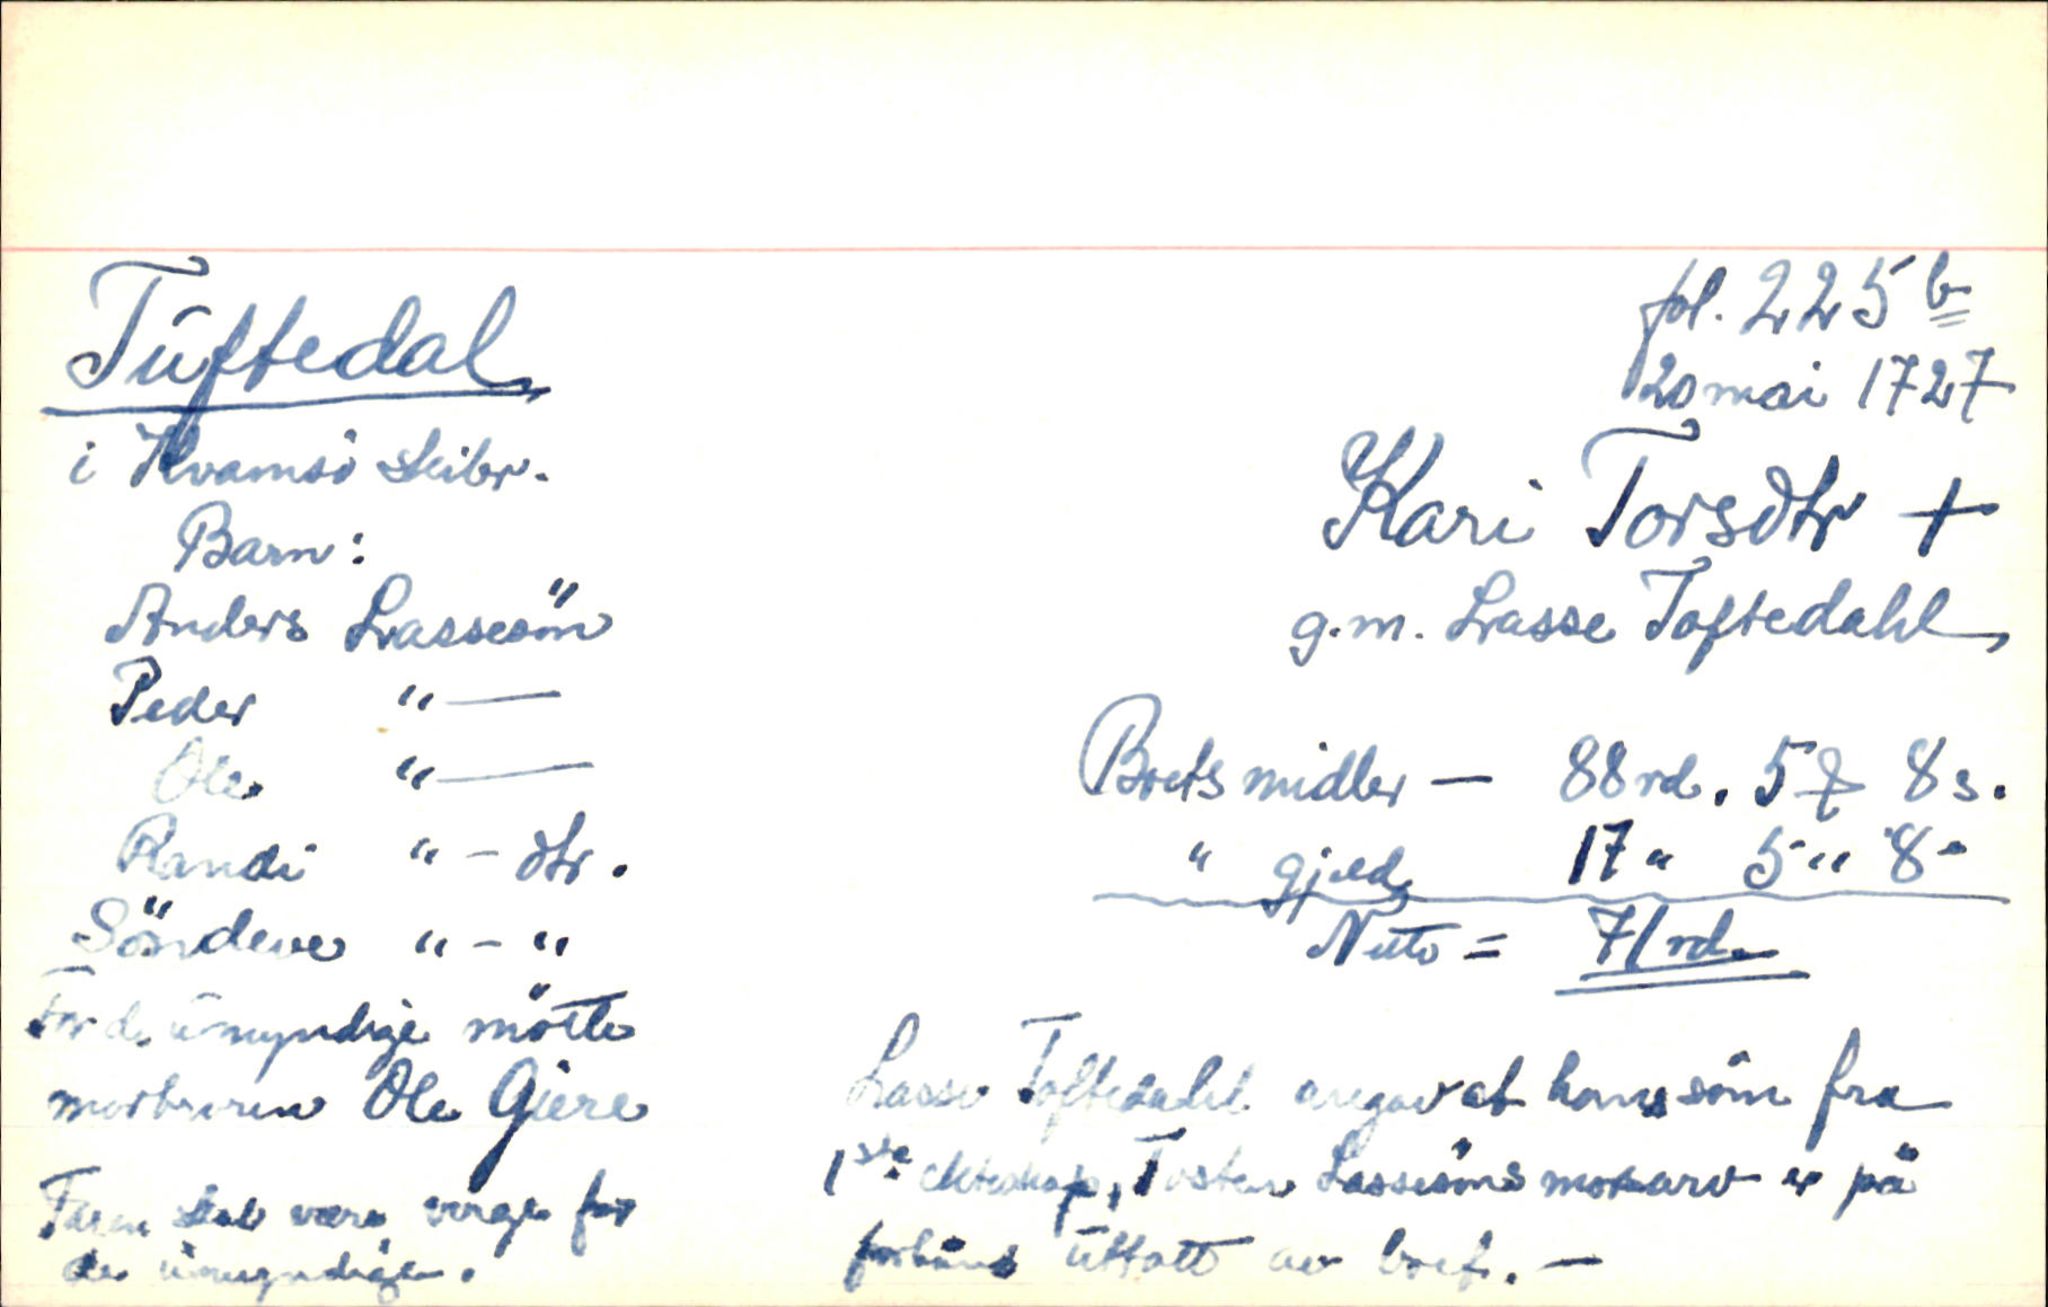 Tuftedal
i Kvamsö skibr.
Barn:
Anders Lassesön
Peder " —
Ole " —
Randi " - dtr.
Söndeve " - "
For de umyndige mötte
morbroren Ole Gjere
Faren skal være verge for
de umyndige.
fol. 225 b
20 mai 1727
Kari Torsdtr +
g.m. Lasse Toftedahl
Boets midler — 88 rd. 5 ₰ 8 s.
" gjeld 17 " 5 " 8 -
Netto = 71 rd.
Lasse Toftedahl angav at hans sön fra
1ste ekteskap, Tosten Lassesöns morsarv er på
forhånd uttatt av boet. —